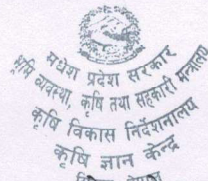 मधेश प्रदेश सरकार
भूमि व्यवस्था, कृषि तथा सहकारी मन्त्रालय
कृषि विकास निर्देशनालय
कृषि ज्ञान केन्द्र